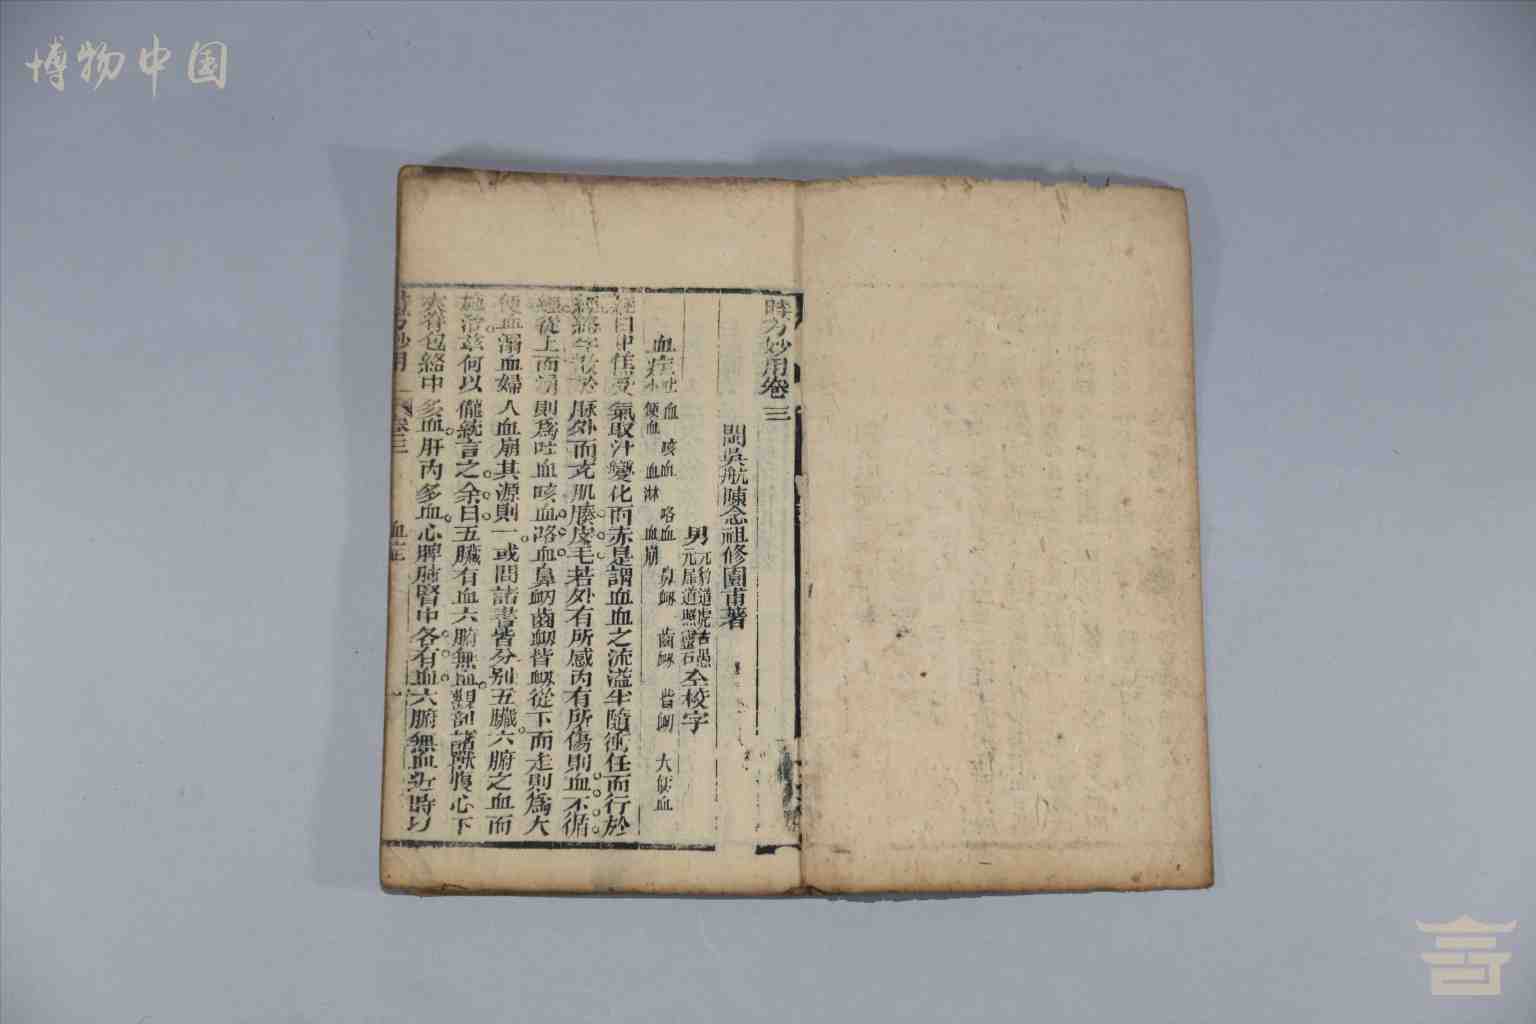 博物中国
時方妙用卷三
閩吳航陳念祖修園甫著
男 元豹道彪古愚
元犀道照靈石 仝校字
血症 吐血 咳血 咯血 鼻衄 齒衄 眥衄 大便血
小便血 血淋 血崩
經曰中焦受氣取汁變化而赤是謂血血之流溢半隨衝任而行於
經絡半散於脉外而充肌腠皮毛若外有所感內有所傷則血不循
經從上而湧則爲吐血咳血咯血鼻衄齒衄眥衄從下而走則爲大
便血溺血婦人血崩其源則一或問諸書皆分別五臟六腑之血而
施治茲何以儱統言之余曰五臟有血六腑無血觀剖諸獸腹心下
夾脊包絡中多血肝內多血心脾肺腎中各有血六腑無血近時以
時方妙用 卷三 血症 一